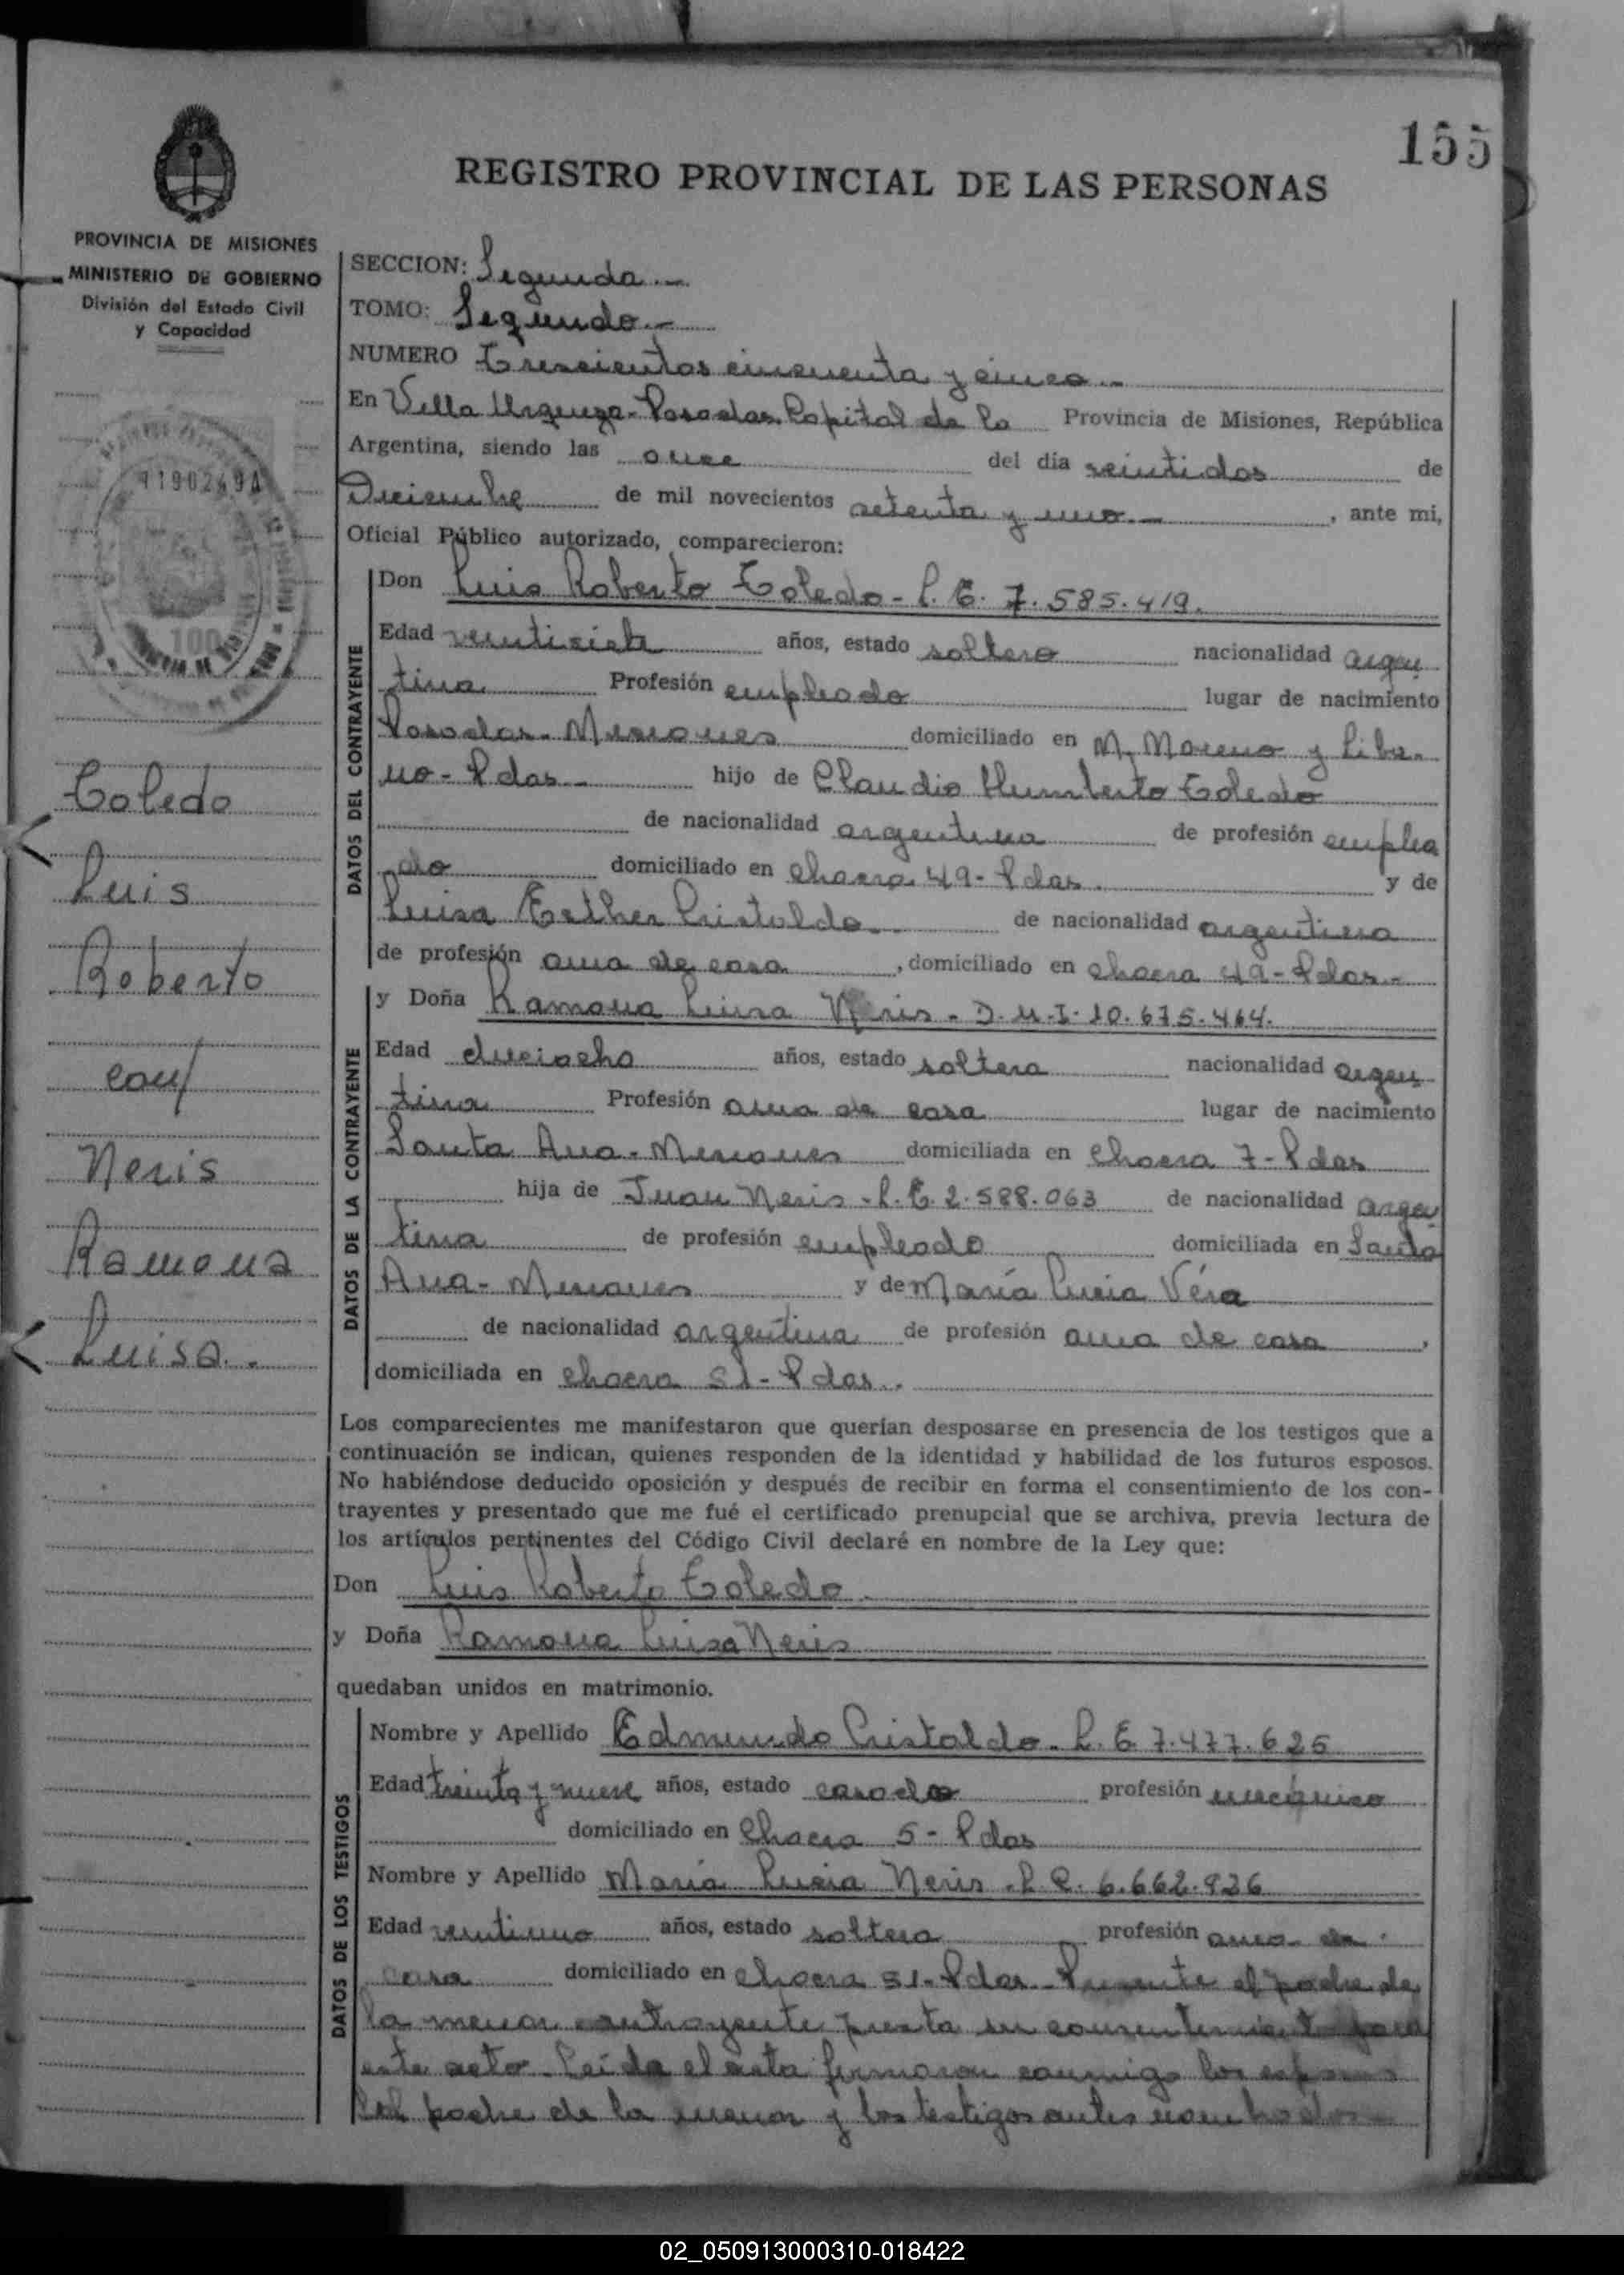 155
REGISTRO PROVINCIAL DE LAS PERSONAS
PROVINCIA DE MISIONES
MINISTERIO DE GOBIERNO
División del Estado Civil
y Capacidad
100
Toledo
Luis
Roberto
con/
Neris
Ramona
Luisa.
SECCION: Segunda.-
TOMO: Segundo.-
NUMERO Trescientos cincuenta y cinco.-
En Villa Urquiza-Posadas Capital de la Provincia de Misiones, República
Argentina, siendo las once del día veintidos de
Diciembre de mil novecientos setenta y uno.-, ante mi,
Oficial Público autorizado, comparecieron:
DATOS DEL CONTRAYENTE
Don Luis Roberto Toledo-L.E. 7.585.419.
Edad veintisiete años, estado soltero nacionalidad argen
tina Profesión empleado lugar de nacimiento
Posadas-Misiones domiciliado en M. Moreno y Liba-
no-Pdas- hijo de Claudio Humberto Toledo
de nacionalidad argentina de profesión emplea
do domiciliado en chacra 49-Pdas. y de
Luisa Esther Cristaldo.- de nacionalidad argentina
de profesión ama de casa, domiciliado en chacra 49-Pdas.-
DATOS DE LA CONTRAYENTE
y Doña Ramona Luisa Neris-D.N.I. 10.675.464.
Edad dieciocho años, estado soltera nacionalidad argen
tina Profesión ama de casa lugar de nacimiento
Santa Ana-Misiones domiciliada en chacra 7-Pdas
hija de Juan Neris-L.E. 2.588.063 de nacionalidad argen
tina de profesión empleado domiciliada en Santa
Ana-Misiones y de María Lucia Véra
de nacionalidad argentina de profesión ama de casa,
domiciliada en chacra 51-Pdas.-
Los comparecientes me manifestaron que querían desposarse en presencia de los testigos que a
continuación se indican, quienes responden de la identidad y habilidad de los futuros esposos.
No habiéndose deducido oposición y después de recibir en forma el consentimiento de los con-
trayentes y presentado que me fué el certificado prenupcial que se archiva, previa lectura de
los artículos pertinentes del Código Civil declaré en nombre de la Ley que:
Don Luis Roberto Toledo.
y Doña Ramona Luisa Neris
quedaban unidos en matrimonio.
DATOS DE LOS TESTIGOS
Nombre y Apellido Edmundo Cristaldo-L.E 7.477.625
Edad treinta y nueve años, estado casado profesión mecánico
domiciliado en chacra 5-Pdas
Nombre y Apellido María Lucia Neris-L.C. 6.662.926
Edad veintiuno años, estado soltera profesión ama de
casa domiciliado en chacra 51-Pdas-Presente el padre de
la menor contrayente presta su consentimiento para
este acto. Leída el acta firmaron conmigo los esposos
el padre de la menor y los testigos antes nombrados-
02_050913000310-018422